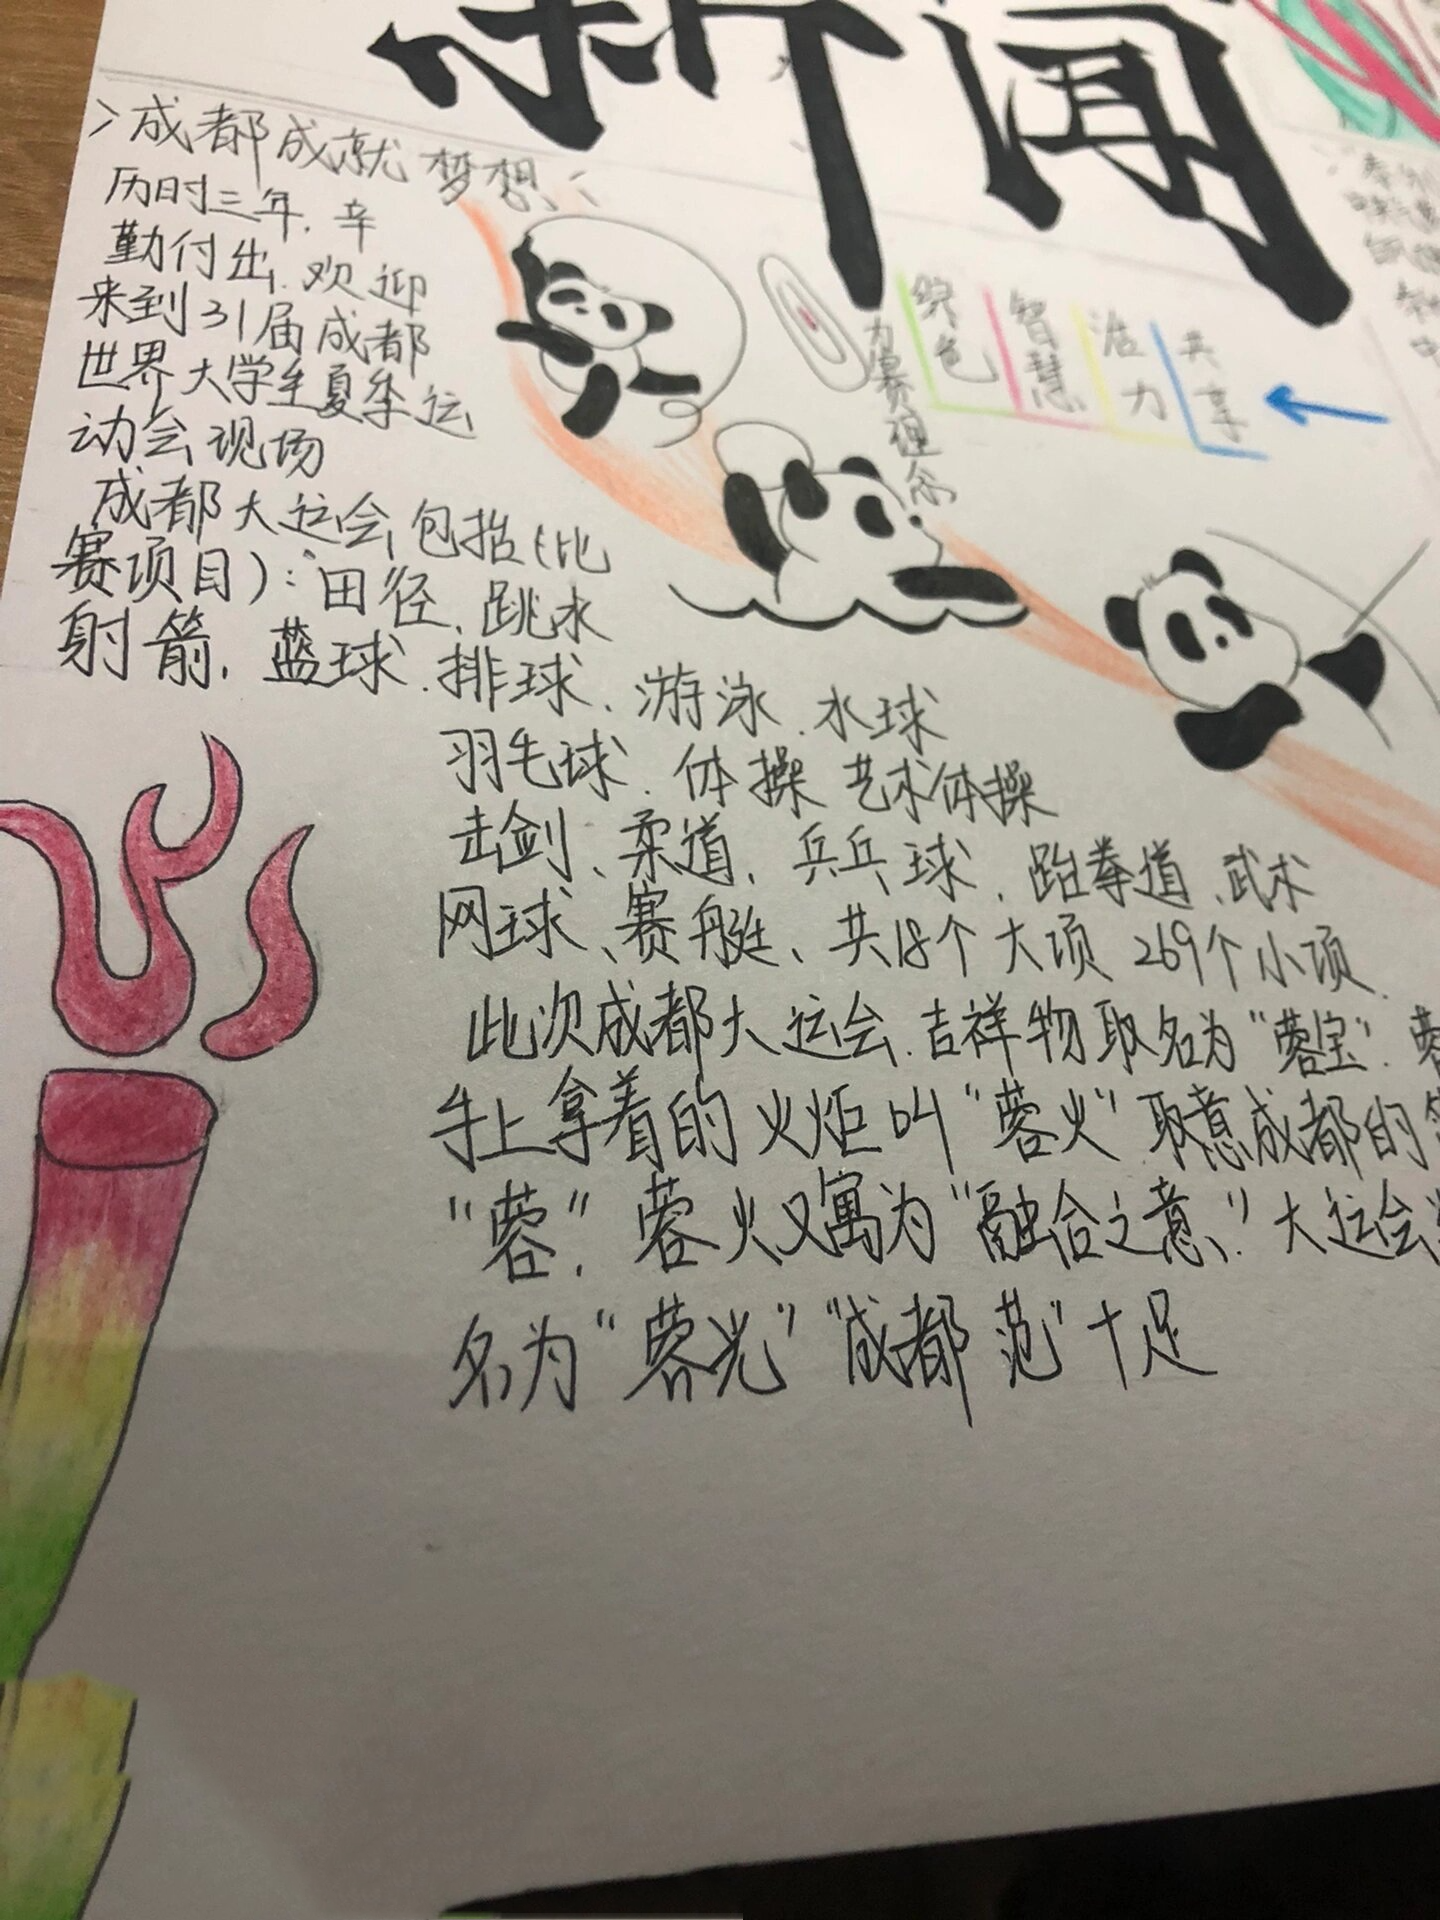 新闻
>成都成就梦想<
历时三年.辛
勤付出.欢迎
来到31届成都
世界大学生夏季运
动会现场
成都大运会包括(比
赛项目):田径、跳水
射箭.蓝球.排球、游泳.水球
羽毛球.体操 艺术体操
击剑、柔道、乒乓球、跆拳道、武术
网球、赛艇、共18个大项 269个小项.
此次成都大运会.吉祥物取名为"蓉宝".蓉
手上拿着的火炬叫"蓉火"取意成都的
"蓉".蓉火又寓为"融合之意."大运会
名为"蓉光""成都范"十足
办赛理念
绿色
智慧
活力
共享